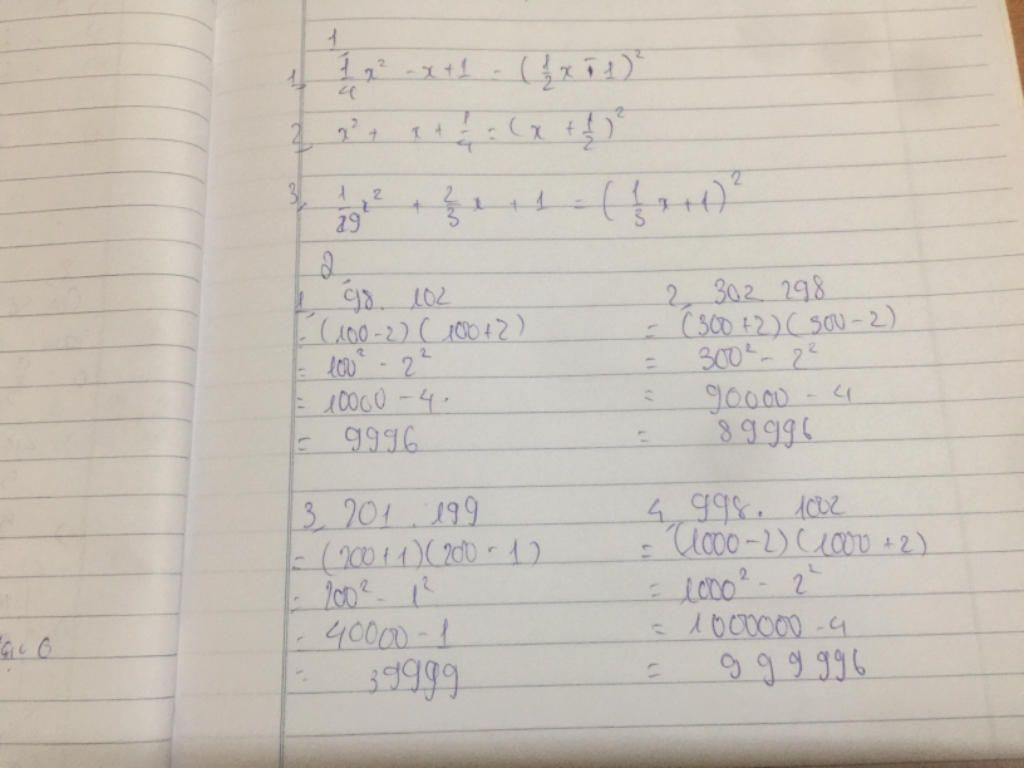 1
1, 1/4 x² - x + 1 = (1/2 x - 1)²
2, x² + x + 1/4 = (x + 1/2)²
3, 1/9 x² + 2/3 x + 1 = (1/3 x + 1)²
2
1, 98. 102
= (100 - 2)(100 + 2)
= 100² - 2²
= 10000 - 4.
= 9996
2, 302 298
= (300 + 2)(300 - 2)
= 300² - 2²
= 90000 - 4
= 89996
3, 201 . 199
= (200 + 1)(200 - 1)
= 200² - 1²
= 40000 - 1
= 39999
4, 998. 1002
= (1000 - 2)(1000 + 2)
= 1000² - 2²
= 1000000 - 4
= 999996